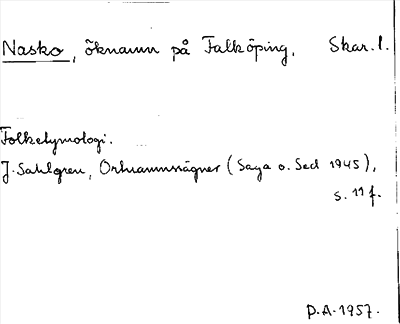 Nasko, öknamn på Falköping. Skar. l.
Folketymologi.
J. Sahlgren, Ortnamnsägner (Saga o. Sed 1945),
s. 11 f.
P.A. 1957.